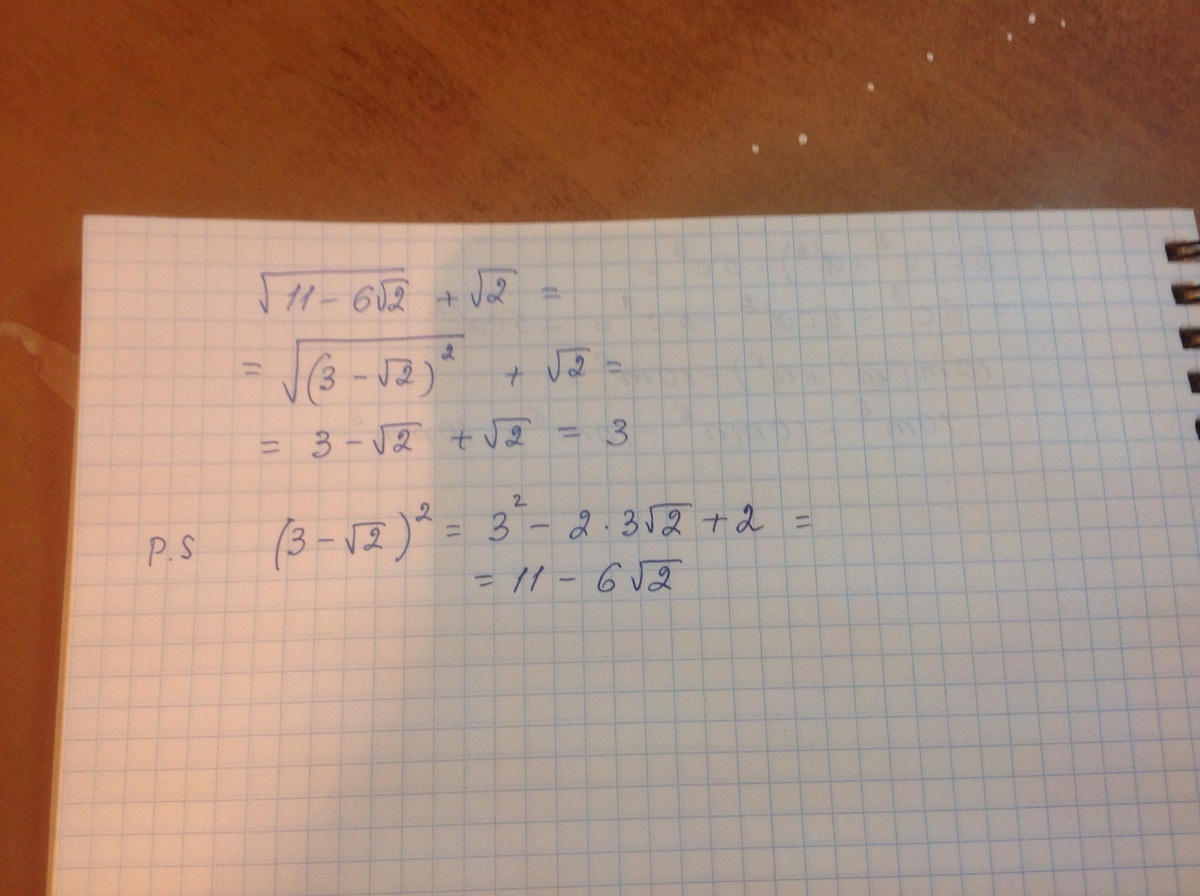 √(11 − 6√2) + √2 =
= √((3 − √2)²) + √2 =
= 3 − √2 + √2 = 3
p.s (3 − √2)² = 3² − 2 · 3√2 + 2 =
= 11 − 6√2